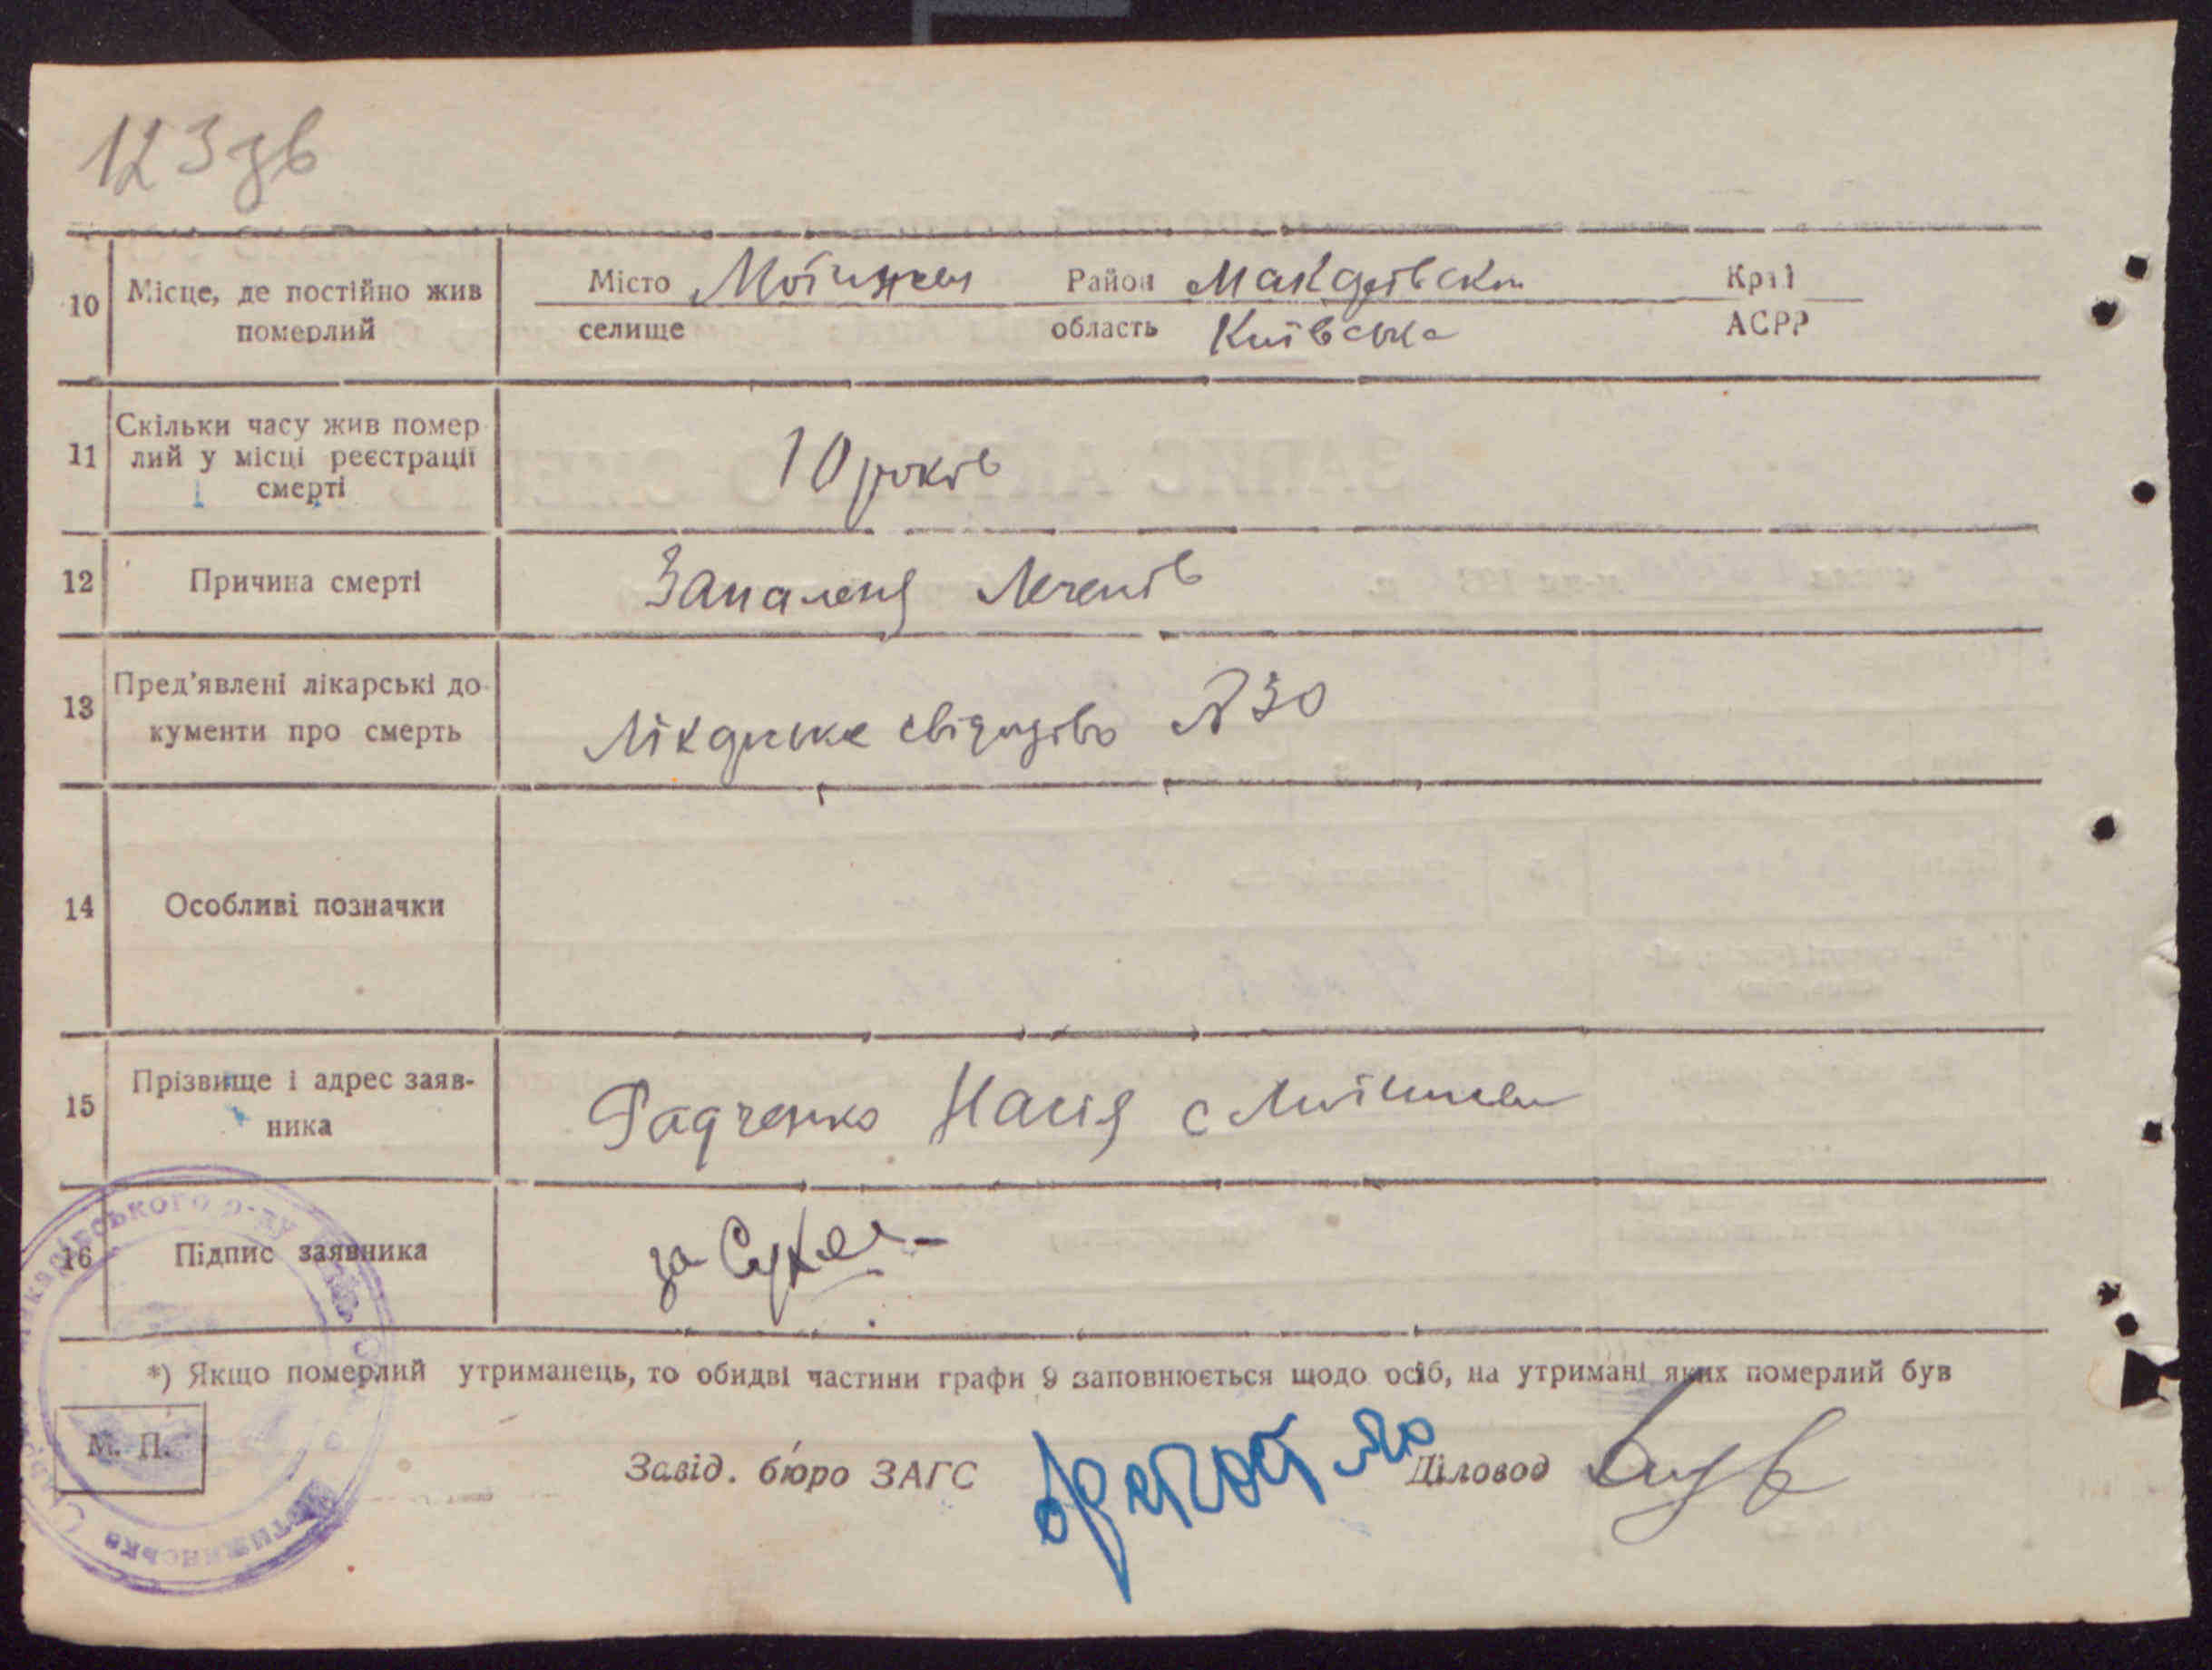 123 зв
10 Місце, де постійно жив померлий
Місто Мотижен Район Макарівськи Край
селище область Київська АСРР
11 Скільки часу жив помер
лий у місці реєстрації
смерті
10 років
12 Причина смерті Запаленя легенів
13 Пред'явлені лікарські до-
кументи про смерть
Лікарське свідоцтво №30
14 Особливі позначки
15 Прізвище і адрес заяв-
ника
Радченко Насія с Мотижен
16 Підпис заявника за
*) Якщо померлий утриманець, то обидві частини графи 9 заповнюється щодо осіб, на утримані яких померлий був
М. П.
Завід. бюро ЗАГС Діловод
Макарівського р-ну
Мотижинська